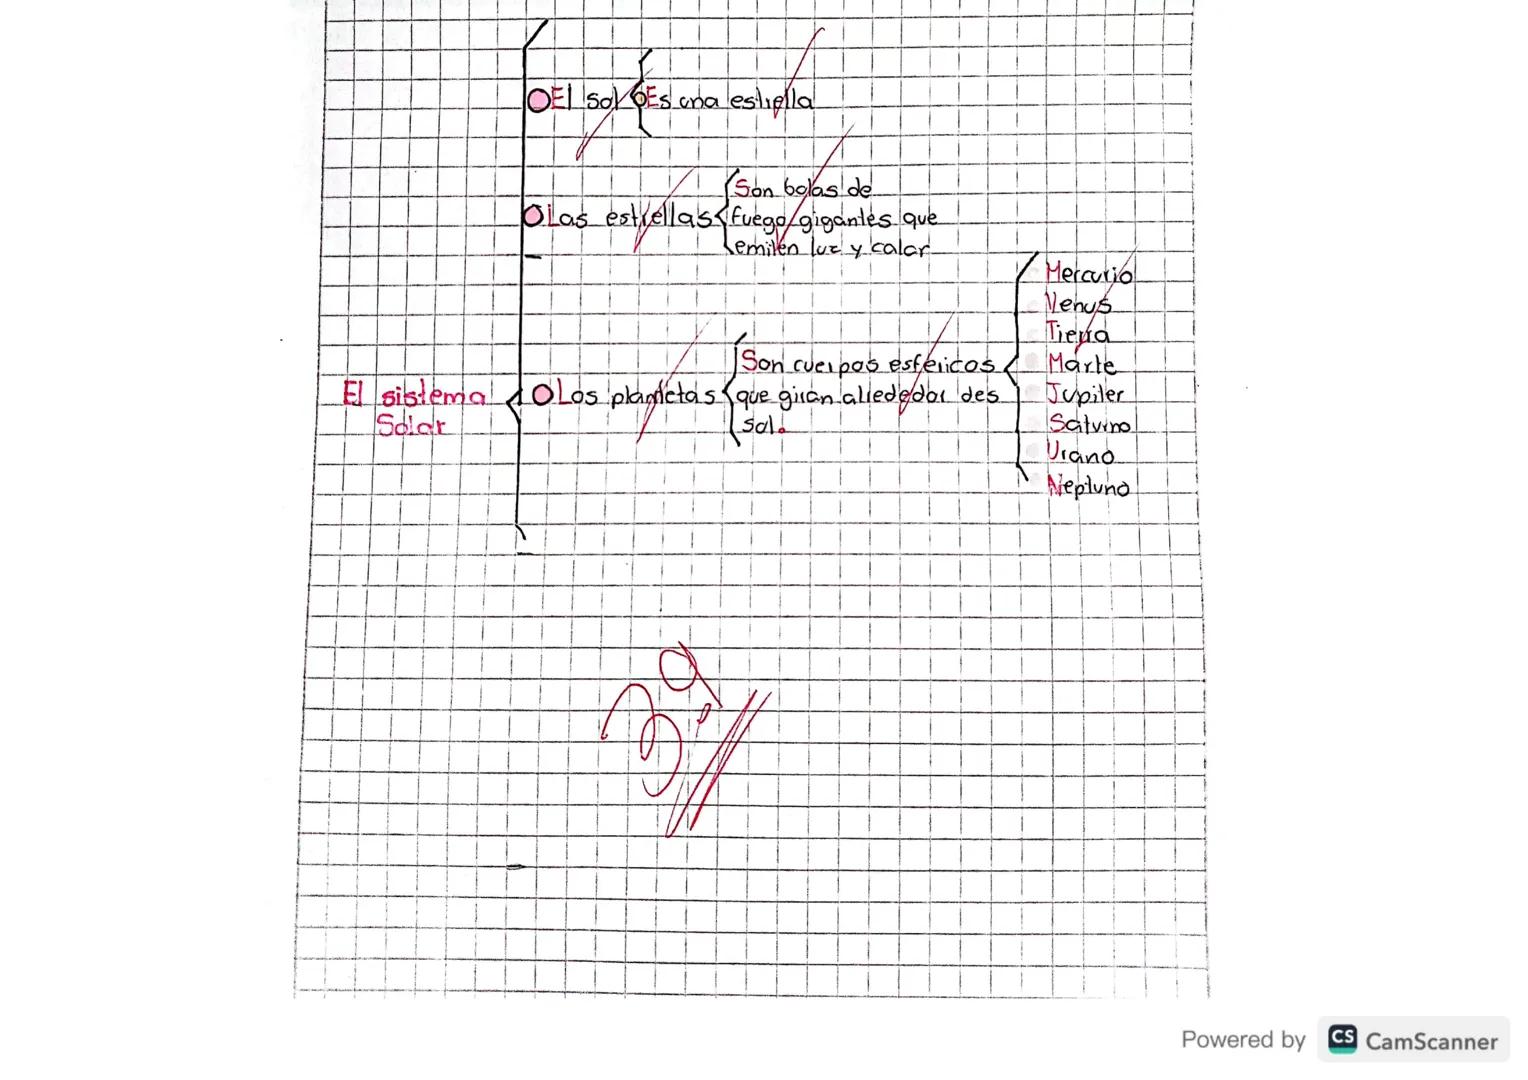 El sol
Es una estrella
Las estrellas
Son bolas de
fuego gigantes que
emiten luz y calor
El sistema
Solar
Los planetas
Son cuerpos esféricos
que giran alrededor des
sol.
Mercurio
Venus
Tierra
Marte
Jupiter
Saturno
Urano
Neptuno
Powered by CS CamScanner